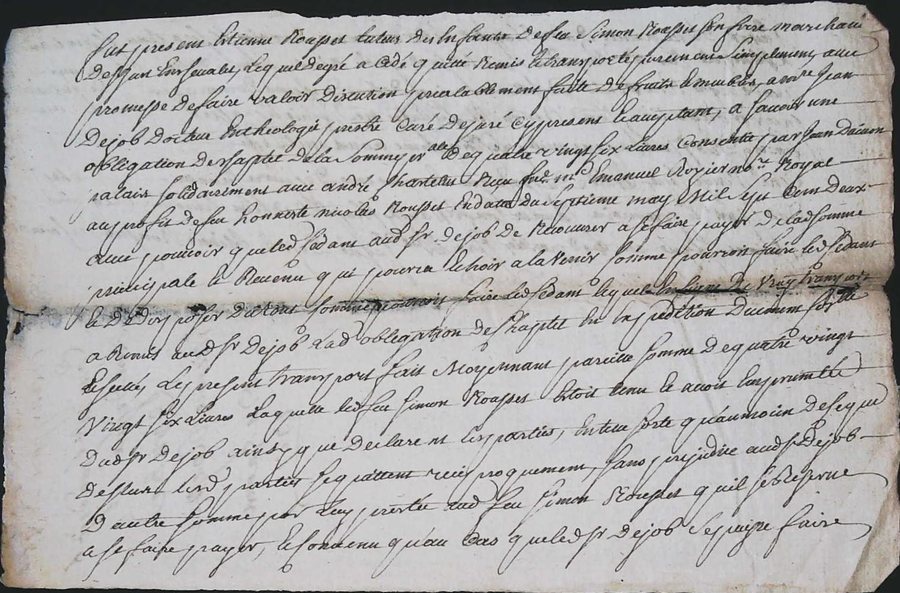 fut present Etienne Rousset tuteur des Enfants de feu Simon Rousset son frere marchand
de gré a cedé quitté Remis et transporté purement et simplement avec
promesse de faire valoir discution prealablement faitte de fruits et meubles, a mre Jean
Dejob Docteur En theologie prestre Curé de juré cy present Ecauptant, a sçavoir une
obligation de chaptel de la Somme de quatre vingt six Livres Consentie par Jean
palais solidairement avec andré Chartelus Reçu par me Emanuel Rozier nore Royal
au profit de feu honneste nicolas Rousset En datte du septieme may Mil sept Cent Deux
avec pouvoir que led Cedant aud sr dejob de Recouvrer a se faire payer de lad somme
principale et Revenu qui pourra Echoir a la venir Comme pourroit faire led Cedant
Et D'En disposer du tout Comme pourroit faire led Cedant lequel
a Remis aud sr dejob Lad obligation de Chaptel En Expedition Duement
Le present transport fait Moyennant pareille somme de quatre vingt
Vingt six Livres Laquelle led feu Simon Rousset Estoit tenu et avoit Emprumtté
Dud sr dejob ainsy que declarent les parties, En telle sorte qu'aumoien de ce que
Dessus lesd parties se quittent reciproquement, sans prejudice aud sr Dejob
D'autre somme par luy prestée aud feu Simon Rousset qu'il se Reserve
a se faire payer, Et Convenu qu'au Cas que led sr dejob se puisse faire